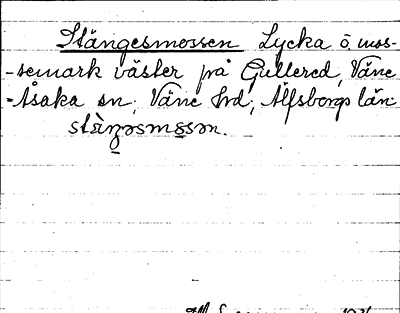 Stängesmossen Lycka o. mos-
-semark väster på Gullered, Väne
-Åsaka sn, Väne hrd, Älfsborgs län
stàŋəsmåsən.